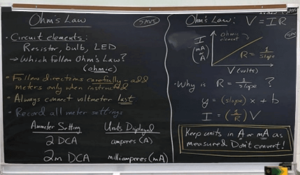 Ohm's Law
• Circuit elements:
Resistor, bulb, LED
→ Which follow Ohm's Law?
(ohmic)
• Follow directions carefully - add
meters only when instructed
• Always connect voltmeter last
• Record all meter settings
Ammeter Setting Units Displayed
2 DCA amperes (A)
2m DCA milliamperes (mA)
Ohm's Law: V = IR
Ohmic
element
I
(mA
or
A)
R = 1/slope
V (volts)
• Why is R = 1/slope ?
y = (slope) x + b
I = (1/R) V
Keep units in A or mA as
measured. Don't convert!